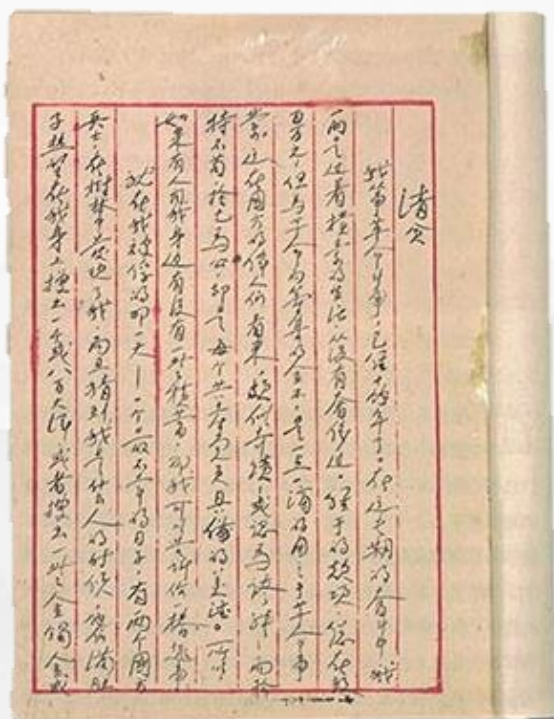 清贫
我从事革命斗争,已经十余年了。在这长期的奋斗中,我
一向是过着朴素的生活,从没有奢侈过。经手的款项,总在数
百万元;但为革命而筹集的金钱,是一点一滴的用之于革命事
业。这在国方的伟人们看来,颇似奇迹,或认为夸张;而矜
持不苟,舍己为公,却是每个共产党员具备的美德。所以,
如果有人问我身边有没有一些积蓄,那我可以告诉你一桩趣事
就在我被俘的那一天——一个最不幸的日子,有两个国方
兵士,在树林中发现了我,而且猜到我是什么人的时候,满肚
子热望在我身上搜出一千或八百大洋,或者搜出一些金镯金戒